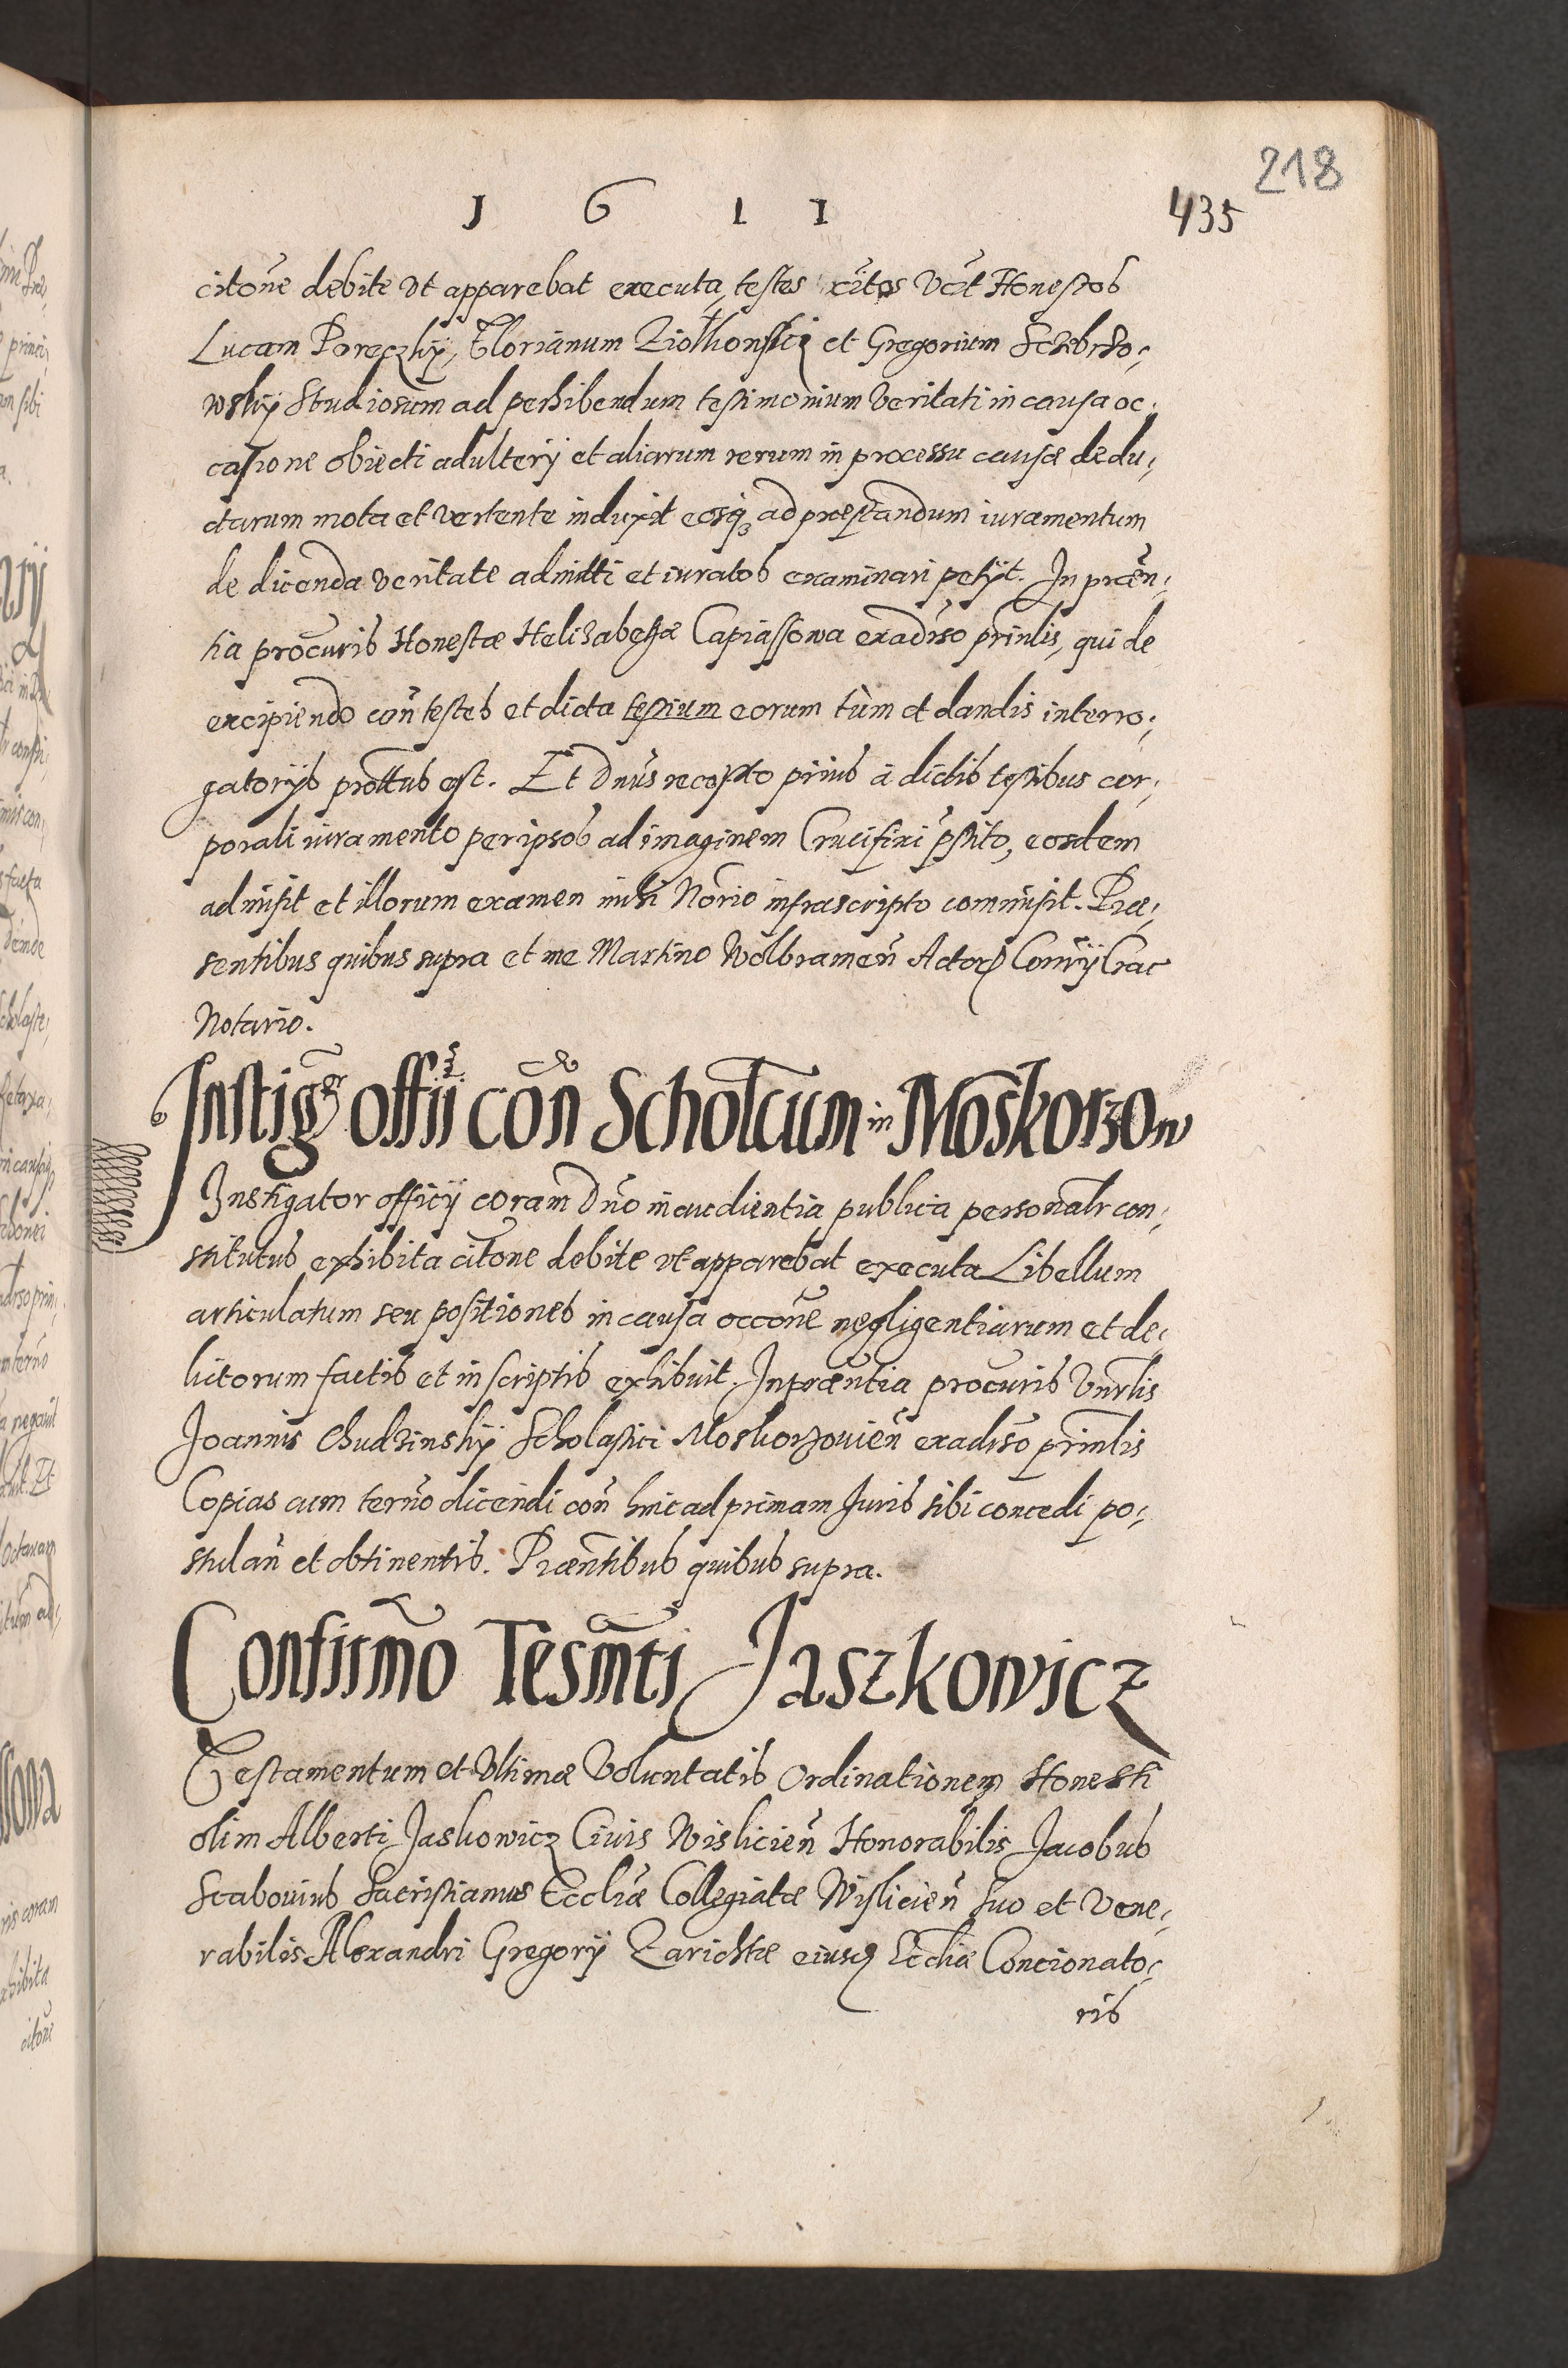 218
1 6 1 1
435
citõne debite vt apparebat executa, testes rẽitos vc̃t Honestos
Lucam Poreczkÿ, Florianum Ziolkonskj et Gregorium Schebrzo-
wskÿ Studiosum ad perhibendum testimonium veritati in causa oc-
casione obiecti adulterÿ et aliarum rerum in processu causæ dedu-
ctarum mota et vertente induxit eosq3 ad præstandum iuramentum
de dicenda veritate admitti et iuratos examinari petÿt. In præn̄-
tia procuris Honestæ Helizabethæ Capiassowa ex adiṽso prinlis, qui de
excipiendo con̄ testes et dicta testium eorum tùm et dandis interro-
gatorÿs prottus est. Et Dnus recepto prius à dictis testibus cor-
porali iuramento per ipsos ad imaginem Crucifixi p̄stito, eosdem
admisit et illorum examen mihi Norio infrascripto commisit. Præ-
sentibus quibus supra et me Martino Wolbramen̄ Actor Conrÿ Crac
Notario.
Instigr̃ offii con̄ Scholcum in Moskorzow
Instigator officÿ coram Dño in audientia publica personalr con-
stitutus exhibita citõne debite vt apparebat executa Libellum
articulatum seu positiones in causa occõne negligentiarum et de-
lictorum factis et in scriptis exhibuit. In præntia procuris Vnrlis
Joannis Chudzinskÿ Scholastici Moskorzouien̄ ex adiṽso prinlis
Copias cum terño dicendi con̄ hinc ad primam Juris sibi concedi po-
stulañ et obtinentis. Præntibus quibus supra.
Confirm̄o Tesm̄ti Jaszkowicz
Testamentum et Vltimæ Voluntatis Ordinationem Honesti
olim Alberti Jaskowicz Ciuis Wislicien̄ Honorabilis Jacobus
Scabouius Sacristianus Eccliæ Collegiatæ Wislicien̄ suo et Vene-
rabilis Alexandri Gregorÿ Zarichtæ eiusd Eccliæ Concionato-
ris